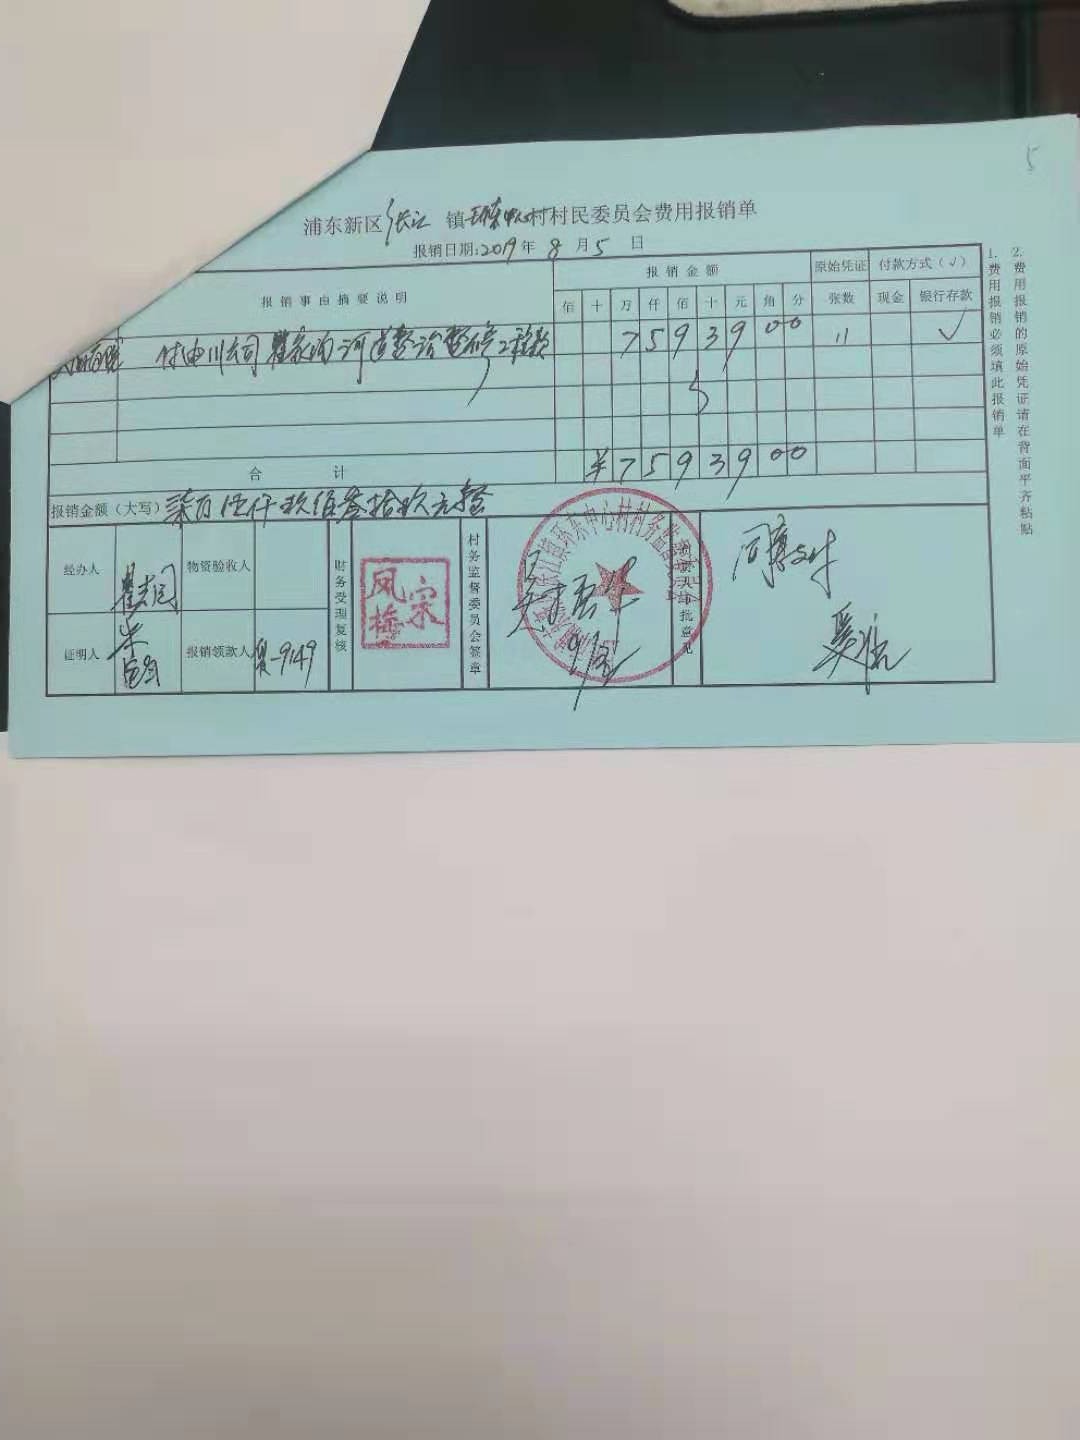 5
浦东新区张江镇环东中心村村民委员会费用报销单
报销日期:2019年8月5日
报销事由摘要说明 报销金额 原始凭证 付款方式(√)
佰 十 万 仟 佰 十 元 角 分 张数 现金 银行存款
河道整治 工程款 7 5 9 3 9 0 0 11 √
合计 ¥ 7 5 9 3 9 0 0
报销金额(大写) 柒万伍仟玖佰叁拾玖元整
经办人 物资验收人
证明人 报销领款人 9149
财务受理复核
宋凤梅
村务监督委员会签章
张江镇环东中心村村务监督委员会
同意支付
1.费用报销必须填此报销单
2.费用报销的原始凭证请在背面平齐粘贴